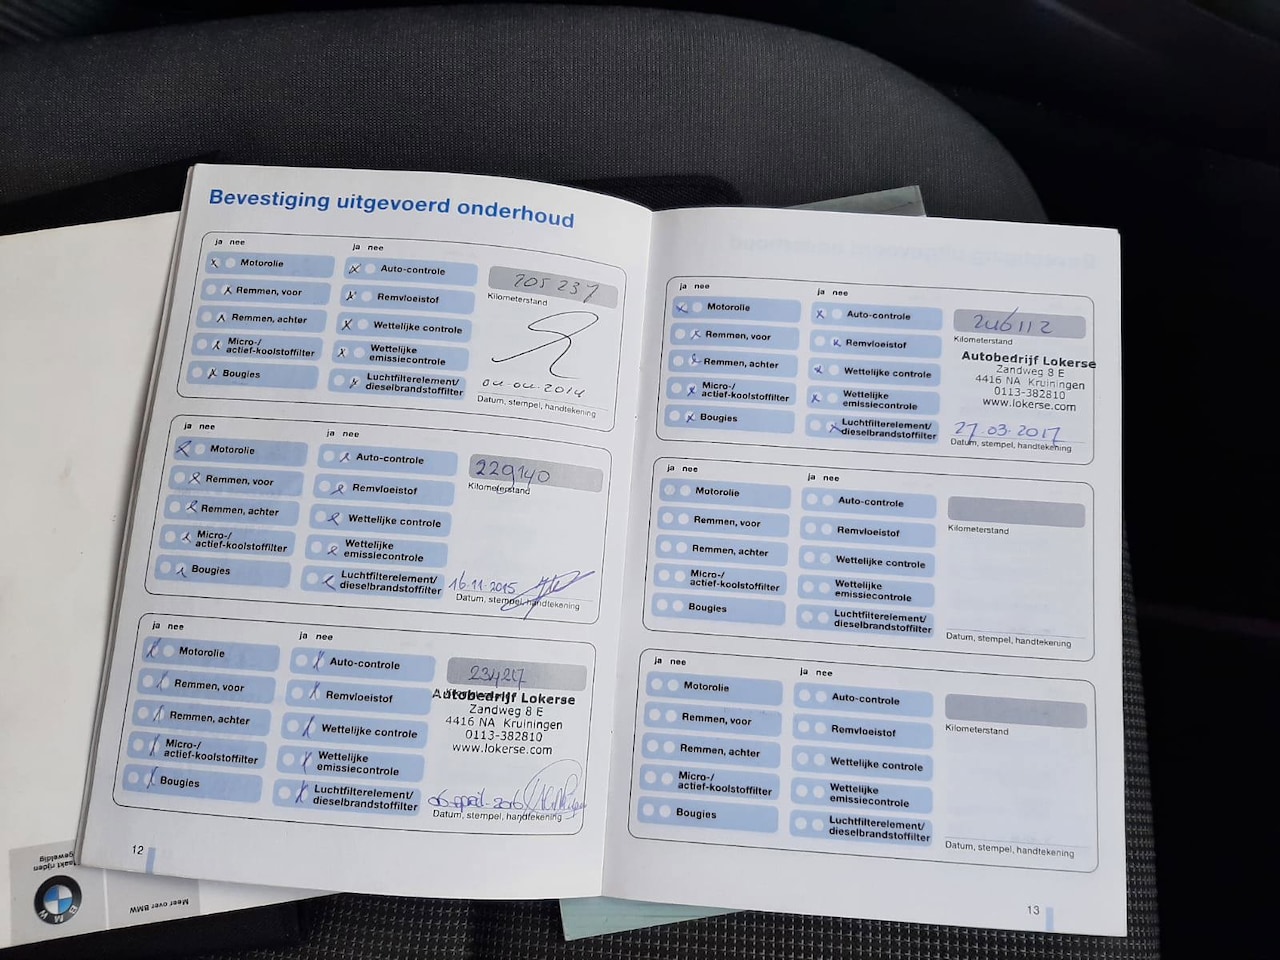 Bevestiging uitgevoerd onderhoud
ja nee
ja nee
Motorolie
Auto-controle
205237
Kilometerstand
Remmen, voor
Remvloeistof
Remmen, achter
Wettelijke controle
Micro-/
actief-koolstoffilter
Wettelijke
emissiecontrole
Bougies
Luchtfilterelement/
dieselbrandstoffilter
04-04-2014
Datum, stempel, handtekening
ja nee
ja nee
Motorolie
Auto-controle
229140
Kilometerstand
Remmen, voor
Remvloeistof
Remmen, achter
Wettelijke controle
Micro-/
actief-koolstoffilter
Wettelijke
emissiecontrole
Bougies
Luchtfilterelement/
dieselbrandstoffilter
16-11-2015
Datum, stempel, handtekening
ja nee
ja nee
Motorolie
Auto-controle
234217
Autobedrijf Lokerse
Zandweg 8 E
4416 NA Kruiningen
0113-382810
www.lokerse.com
Remmen, voor
Remvloeistof
Remmen, achter
Wettelijke controle
Micro-/
actief-koolstoffilter
Wettelijke
emissiecontrole
Bougies
Luchtfilterelement/
dieselbrandstoffilter
april-2016
Datum, stempel, handtekening
12
ja nee
ja nee
Motorolie
Auto-controle
246112
Kilometerstand
Autobedrijf Lokerse
Zandweg 8 E
4416 NA Kruiningen
0113-382810
www.lokerse.com
Remmen, voor
Remvloeistof
Remmen, achter
Wettelijke controle
Micro-/
actief-koolstoffilter
Wettelijke
emissiecontrole
Bougies
Luchtfilterelement/
dieselbrandstoffilter
27-03-2017
Datum, stempel, handtekening
ja nee
ja nee
Motorolie
Auto-controle
Kilometerstand
Remmen, voor
Remvloeistof
Remmen, achter
Wettelijke controle
Micro-/
actief-koolstoffilter
Wettelijke
emissiecontrole
Bougies
Luchtfilterelement/
dieselbrandstoffilter
Datum, stempel, handtekening
ja nee
ja nee
Motorolie
Auto-controle
Kilometerstand
Remmen, voor
Remvloeistof
Remmen, achter
Wettelijke controle
Micro-/
actief-koolstoffilter
Wettelijke
emissiecontrole
Bougies
Luchtfilterelement/
dieselbrandstoffilter
Datum, stempel, handtekening
13
maakt rijden
geweldig
BMW
Meer over BMW